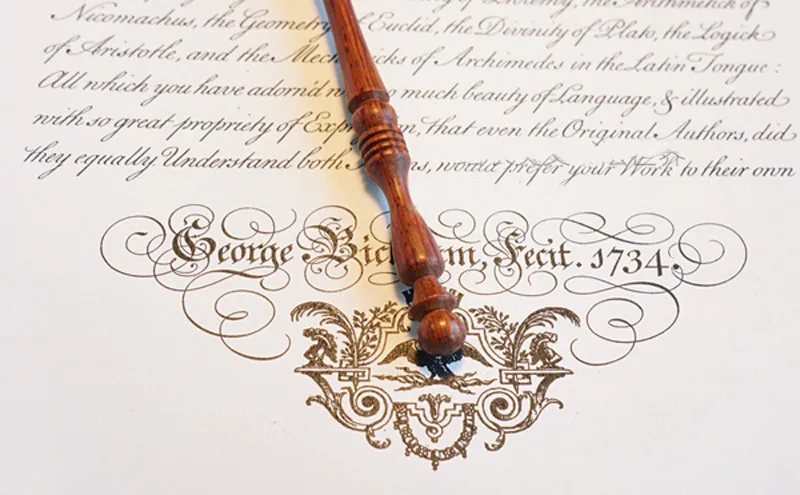 of Ptolemy, the Arithmetick of
Nicomachus, the Geometry of Euclid, the Divinity of Plato, the Logick
of Aristotle, and the Mech icks of Archimedes in the Latin Tongue:
All which you have adorn'd so much beauty of Language, & illustrated
with so great propriety of Exp n, that even the Original Authors, did
they equally Understand both s, would prefer your Work to their own
George Bic m, Fecit. 1734.